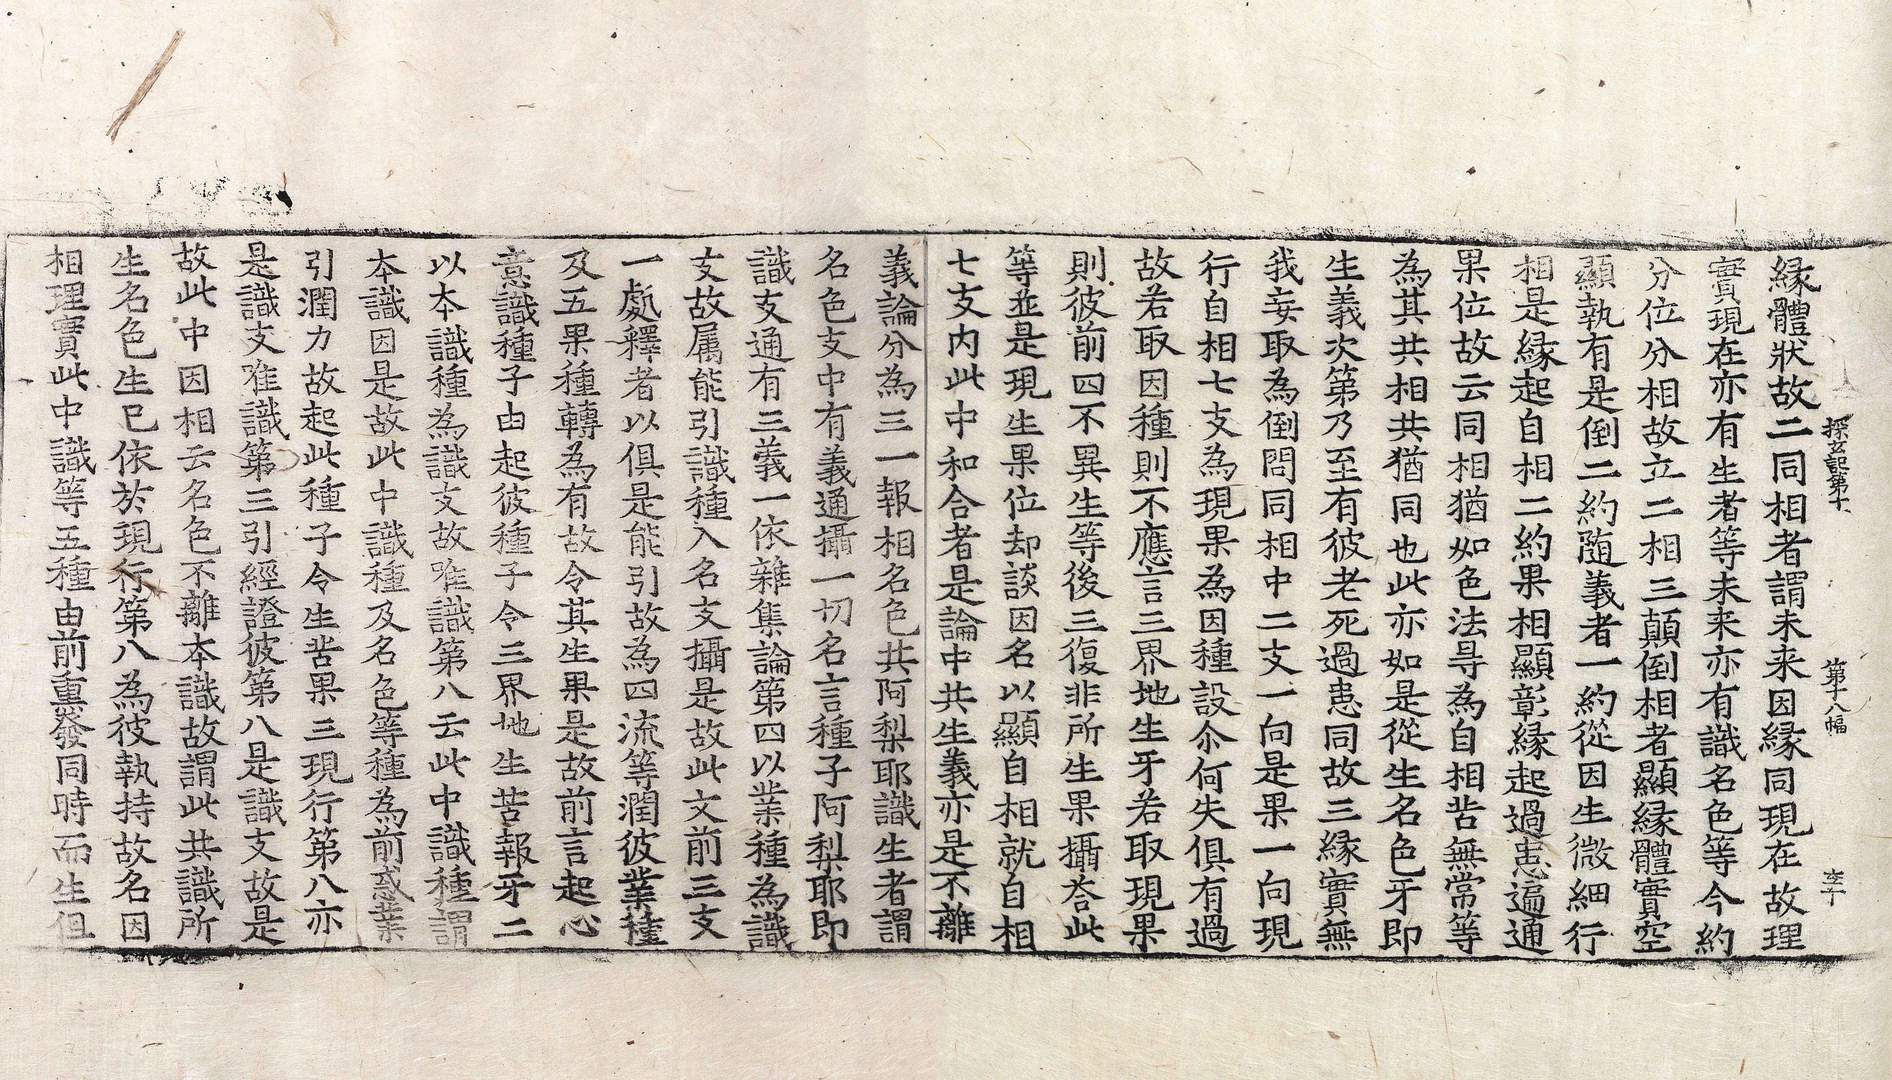 探玄記第十 第十八幅 李下
緣體狀故二同相者謂未来因緣同現在故理
實現在亦有生者等未来亦有識名色等今約
分位分相故立二相三顛倒相者顯緣體實空
顯執有是倒二約随義者一約從因生微細行
相是緣起自相二約果相顯彰緣起過患遍通
果位故云同相猶如色法㝵為自相苦無常等
為其共相共猶同也此亦如是從生名色牙即
生義次第乃至有彼老死過患同故三緣實無
我妄取為倒問同相中二支一向是果一向現
行自相七支為現果為因種設尒何失俱有過
故若取因種則不應言三界地生牙若取現果
則彼前四不異生等後三復非所生果攝荅此
等並是現生果位却談因名以顯自相就自相
七支内此中和合者是論中共生義亦是不離
義論分為三一報相名色共阿梨耶識生者謂
名色支中有義通攝一切名言種子阿梨耶即
識支通有三義一依雜集論第四以業種為識
支故属能引識種入名支攝是故此文前三支
一處釋者以俱是能引故為四流等潤彼業種
及五果種轉為有故令其生果是故前言起心
意識種子由起彼種子令三界地生苦報牙二
以本識種為識支故唯識第八云此中識種謂
本識因是故此中識種及名色等種為前惑業
引潤力故起此種子令生苦果三現行第八亦
是識支唯識第三引經證彼第八是識支故是
故此中因相云名色不離本識故謂此共識所
生名色生已依於現行第八為彼執持故名因
相理實此中識等五種由前熏發同時而生但